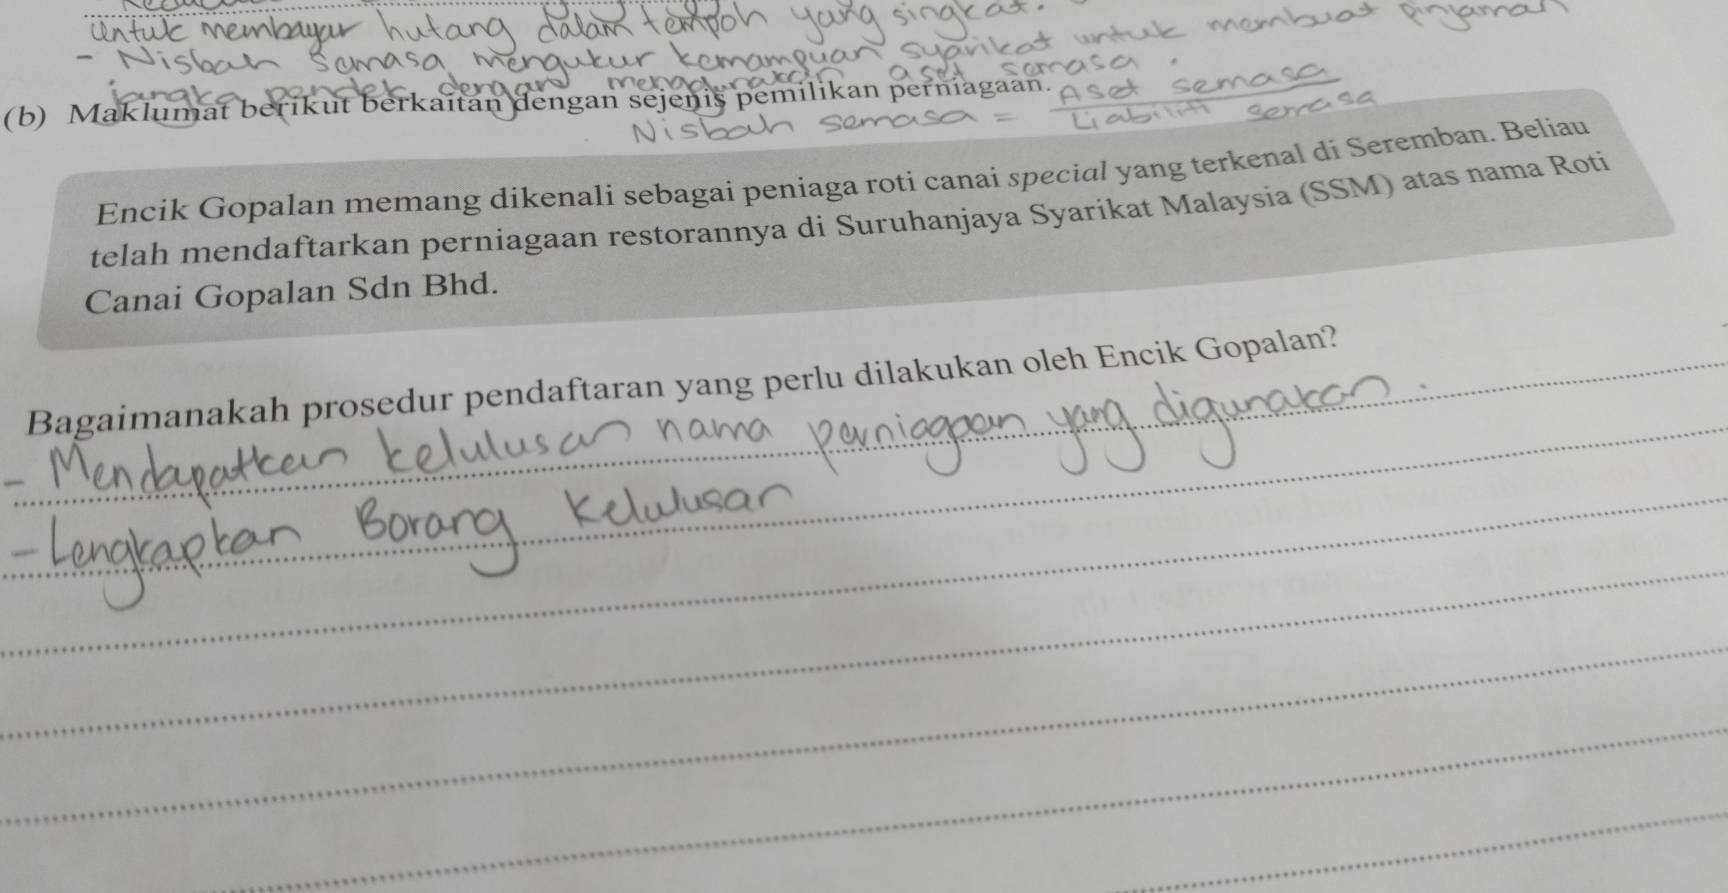 untuk membayar hutang dalam tempoh yang singkat.
- Nisbah semasa mengukur kemampuan syarikat untuk membuat pinjaman
jangka pendek dengan menggunakan aset semasa.
(b) Maklumat berikut berkaitan dengan sejenis pemilikan perniagaan.
Nisbah semasa = Aset semasa
Liabiliti semasa
Encik Gopalan memang dikenali sebagai peniaga roti canai special yang terkenal di Seremban. Beliau
telah mendaftarkan perniagaan restorannya di Suruhanjaya Syarikat Malaysia (SSM) atas nama Roti
Canai Gopalan Sdn Bhd.
Bagaimanakah prosedur pendaftaran yang perlu dilakukan oleh Encik Gopalan?
- Mendapatkan kelulusan nama perniagaan yang digunakan.
- Lengkapkan Borang Kelulusan